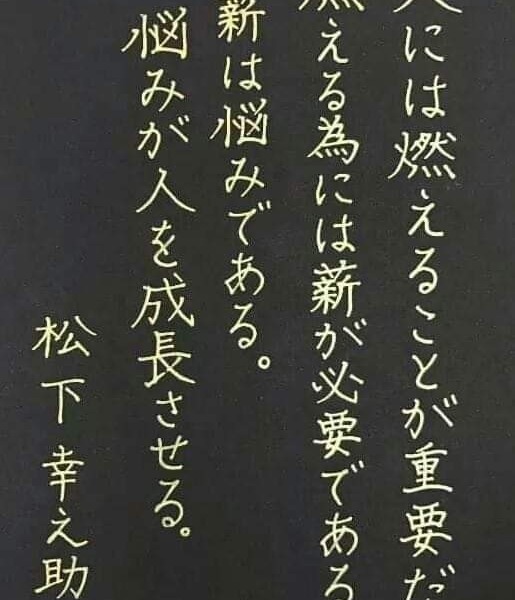 人には燃えることが重要だ
燃える為には薪が必要である
薪は悩みである。
悩みが人を成長させる。
松下幸之助